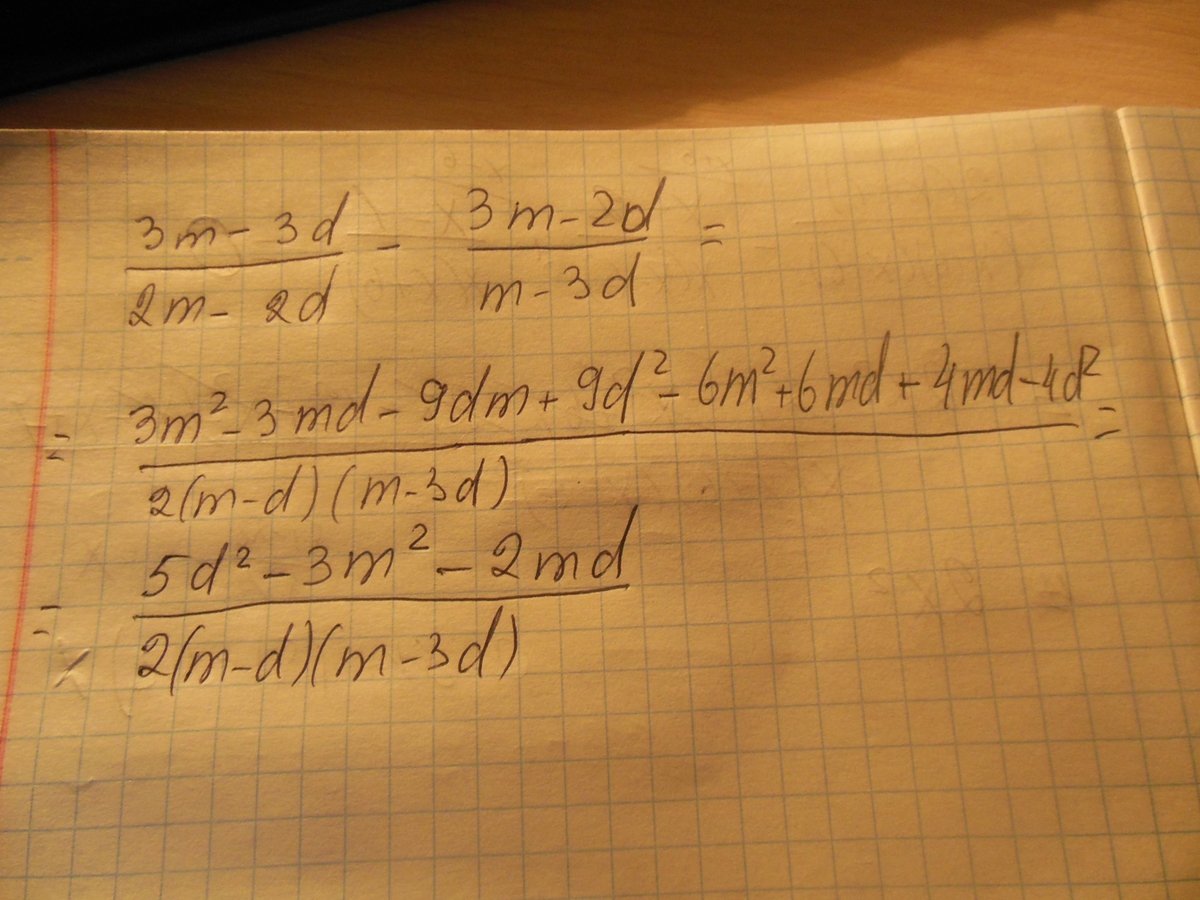 3m - 3d / 2m - 2d - 3m - 2d / m - 3d =
= 3m² - 3md - 9dm + 9d² - 6m² + 6md + 4md - 4d² / 2(m-d)(m-3d) =
= 5d² - 3m² - 2md / 2(m-d)(m-3d)